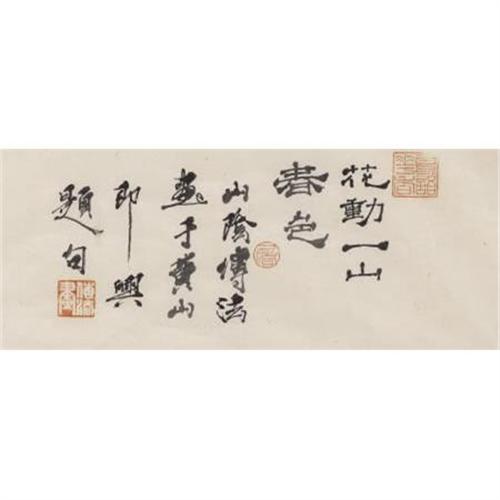 花動一山
春色
山陰傳法
畫于黄山
即興
題句